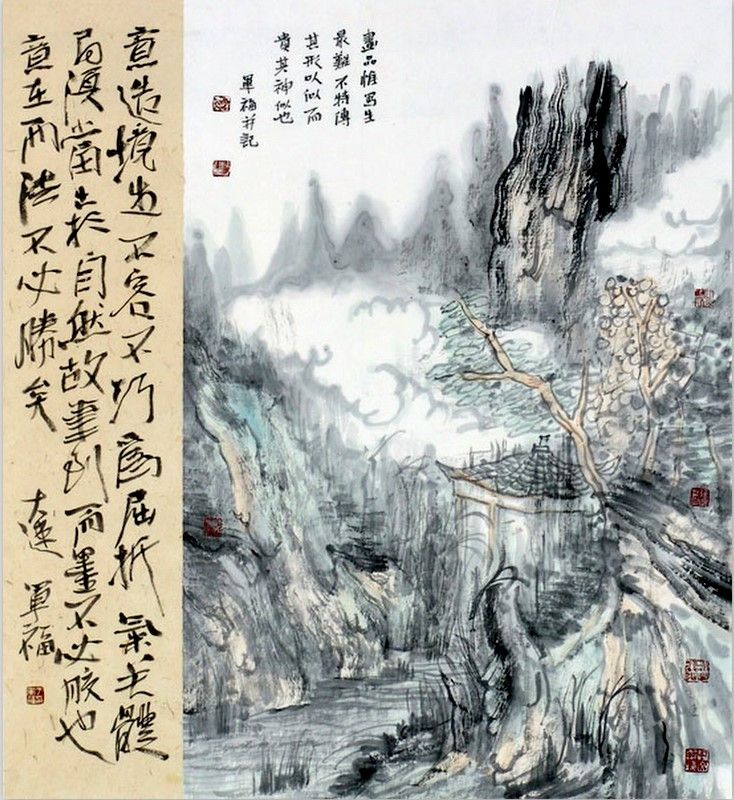 畫品惟寫生
最難不特傳
其形以似而
貴其神似也
軍福并記
意造境生不容不巧為屈折氣关體
局須當出於自然故筆到而墨不必膠也
意在而法不必勝矣
大連 軍福